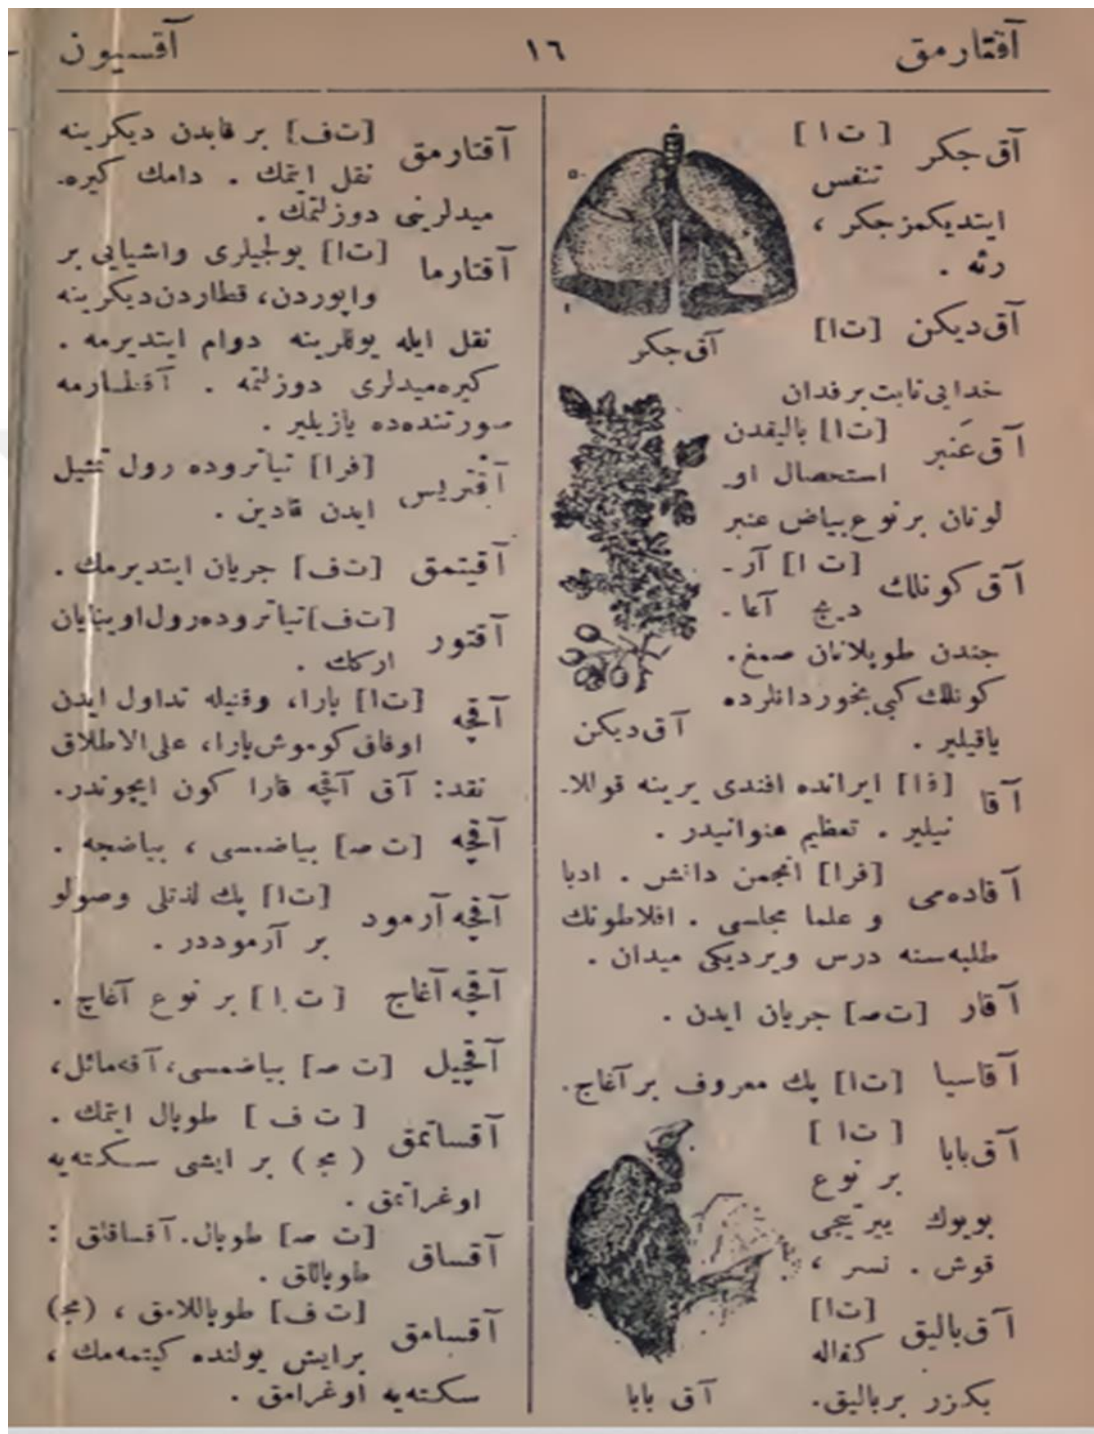 آقتارمق
١٦
آقسیون
آق جكر [ت ا]
تنفس
ایتدیكمز جكر ،
رئه .
آق جكر
آق دیكن [ت ا]
خدایی نابت بر فدان
آق عَنبر [ت ا] بالیقدن
استحصال او‐
لونان بر نوع بیاض عنبر
آق كونلك [ت ا] آر‐
دیج آغا‐
جندن طوپلانان صمغ.
كونلك كبی بخوردانلرده
یاقیلیر .
آق دیكن
آقا [فا] ایرانده افندی یرینه قوللا‐
نیلیر . تعظیم عنوانیدر .
آقاده می [فرا] انجمن دانش . ادبا
و علما مجلسی . افلاطونك
طلبه سنه درس ویردیكی میدان .
آقار [ت ص] جریان ایدن .
آقاسیا [ت ا] پك معروف بر آغاج.
آق بابا [ت ا]
بر نوع
بویوك ییرتیجی
قوش . نسر ،
آق بابا
آق بالیق [ت ا]
كفاله
بكزر بر بالیق.
آقتارمق [ت ف] بر قابدن دیكرینه
نقل ایتمك . دامك كیره‐
میدلرینی دوزلتمك .
آقتارما [ت ا] یولجیلری واشیایی بر
واپوردن، قطاردن دیكرینه
نقل ایله یوللرینه دوام ایتدیرمه .
كیره میدلری دوزلتمه . آقطارمه
صورتنده ده یازیلیر .
آقتریس [فرا] تیاتروده رول تمثیل
ایدن قادین .
آقیتمق [ت ف] جریان ایتدیرمك .
آقتور [ت ف] تیاتروده رول اوینایان
اركك .
آقچه [ت ا] پارا، وقتیله تداول ایدن
اوفاق كوموش پارا، علی الاطلاق
نقد: آق آقچه قارا كون ایچوندر.
آقچه [ت ص] بیاضمسی ، بیاضجه .
آقچه آرمود [ت ا] پك لذتلی وصولو
بر آرموددر .
آقچه آغاج [ت ا] بر نوع آغاج .
آقچیل [ت ص] بیاضمسی، آقه مائل،
آقساتمق [ت ف] طوپال ایتمك .
(مج) بر ایشی سكته یه
اوغراتمق .
آقساق [ت ص] طوپال. آقساقلق :
طوپاللق .
آقسامق [ت ف] طوپاللامق ، (مج)
بر ایش یولنده كیتمه مك ،
سكته یه اوغرامق .